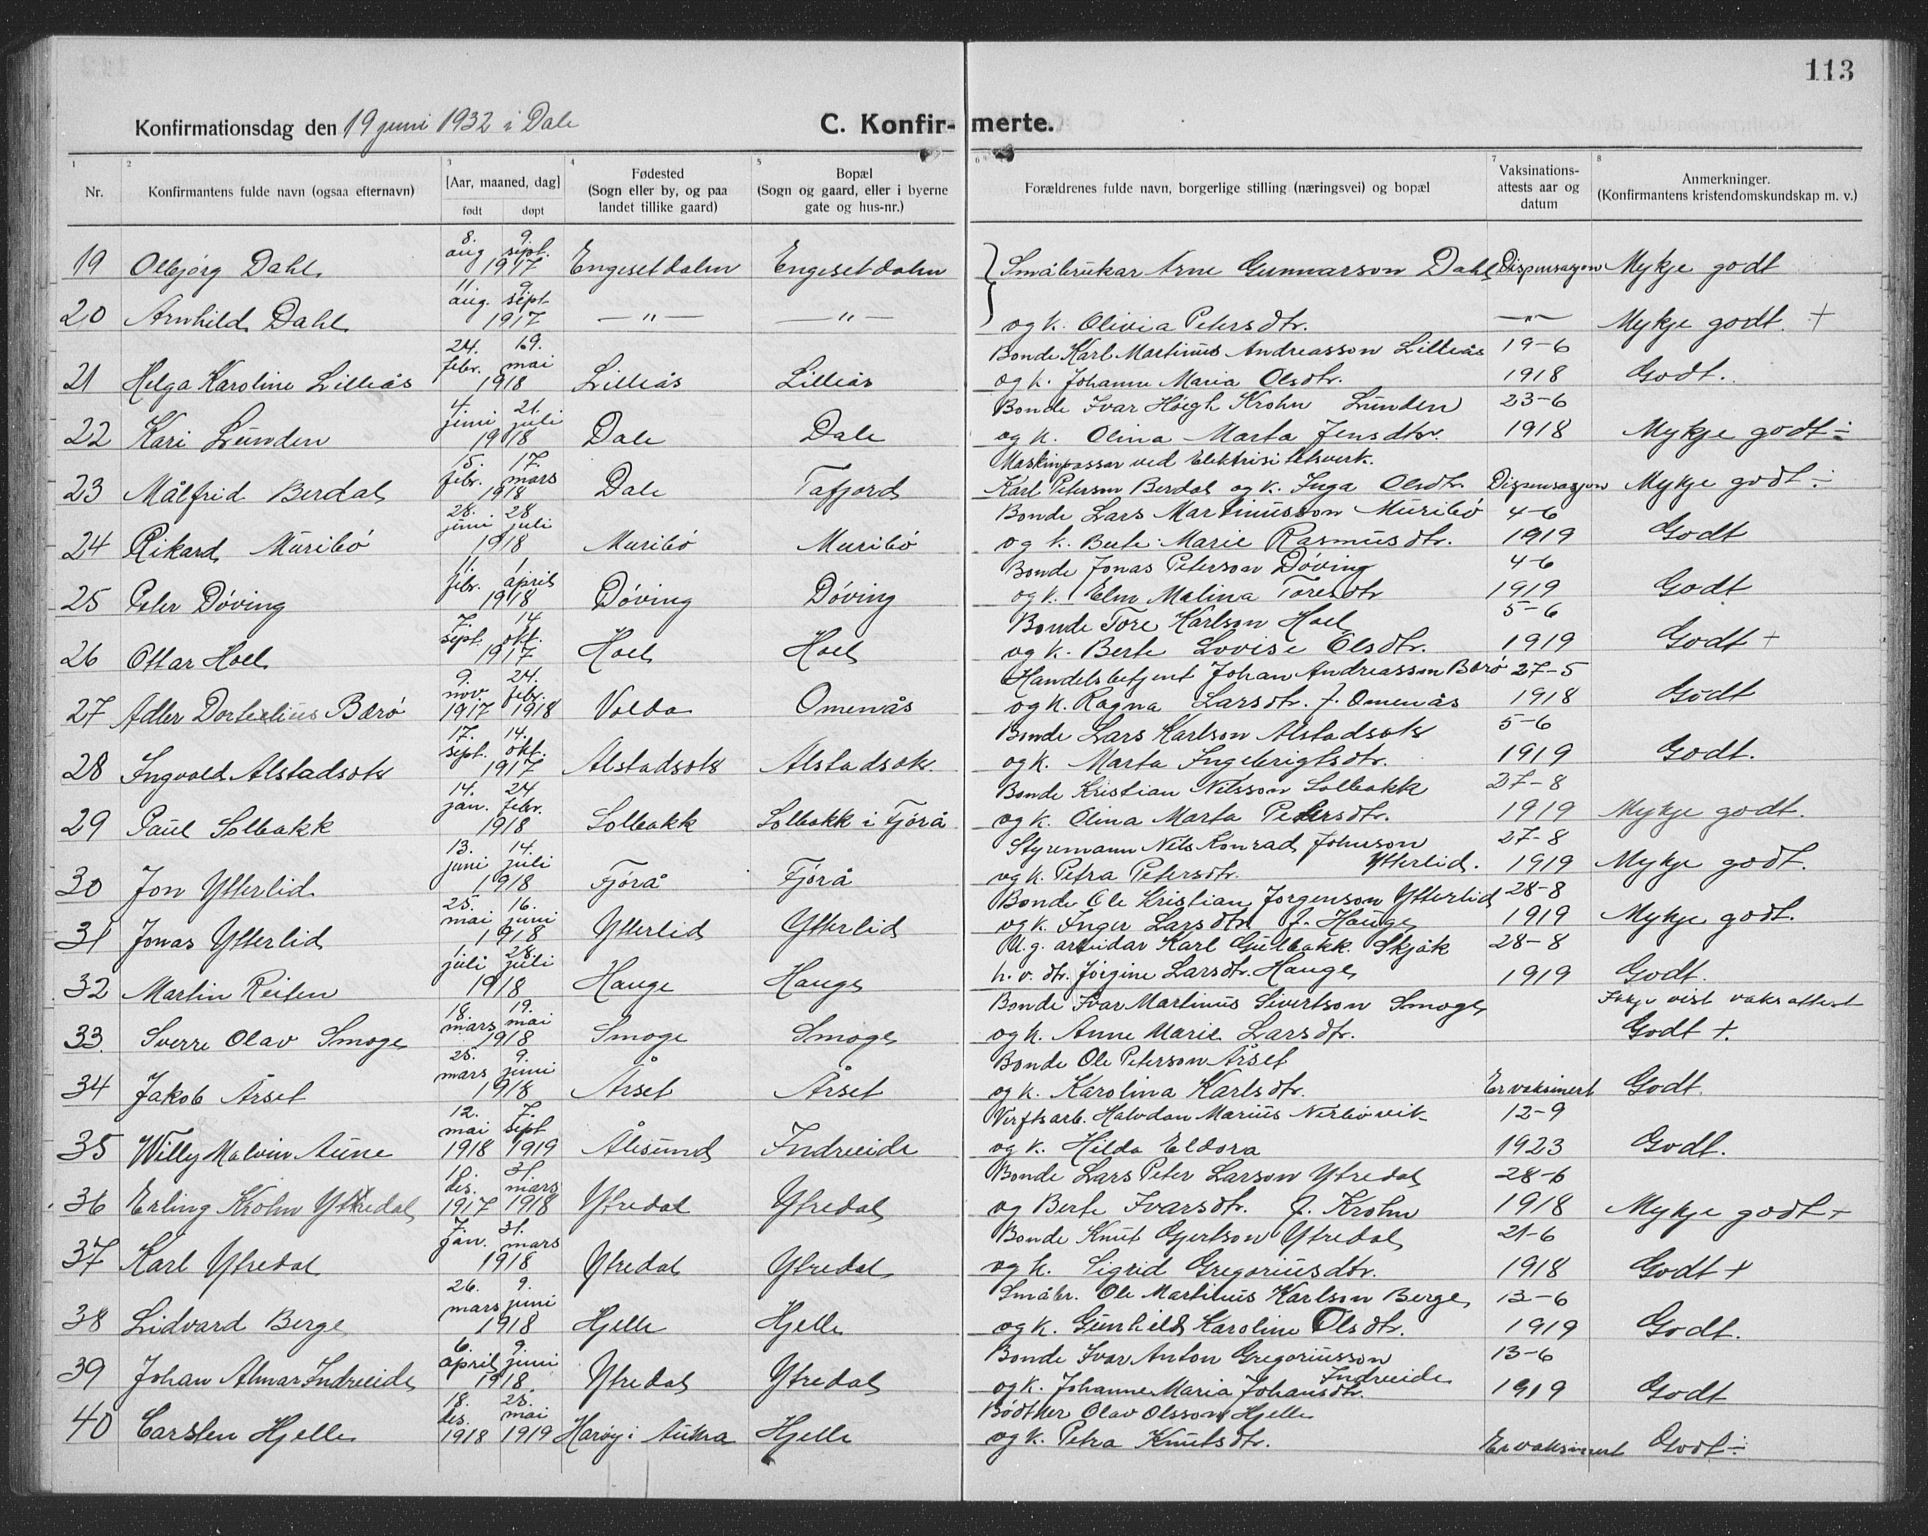 113
Konfirmationsdag den 19 juni 1932 i Dale
C. Konfir-merte.
1 2 3 4 5 6 7 8
Nr. Konfirmantens fulde navn (ogsaa efternavn) [Aar, maaned, dag] født døpt Fødested (Sogn eller by, og paa landet tillike gaard) Bopæl (Sogn og gaard, eller i byerne gate og hus-nr.) Forældrenes fulde navn, borgerlige stilling (næringsvei) og bopæl Vaksinations-attests aar og datum Anmerkninger. (Konfirmantens kristendomskundskap m. v.)
19 Olbjørg Dahl 8. aug 9. sept. 1917 Engesetdalen Engesetdalen Småbrukar Arne Gunnarson Dahl Dispensasjon Mykje godt
20 Arnhild Dahl 11. aug. 9. sept 1917 —"— —"— og k. Olivia Petersdtr. —"— Mykje godt. +
21 Helga Karoline Lilleås 24. febr. 19. mai 1918 Lilleås Lilleås Bonde Karl Martinus Andreasson Lilleås
og k. Johanne Maria Olsdtr. 19-6 1918 Godt.
22 Kari Lunden 4. juni 21. juli 1918 Dale Dale Bonde Ivar Høegh Krohn Lunden
og k. Olina Marta Jensdtr. 23-6 1918 Mykje godt ÷
23 Målfrid Berdal 15. febr. 17. mars 1918 Dale Tafjord Maskinpassar ved Elektrisitetsverk.
Karl Peterson Berdal og k. Inga Olsdtr Dispensasjon Mykje godt ÷
24 Rikard Muribø 28. juni 28 juli 1918 Muribø Muribø Bonde Lars Martinusson Muribø
og k. Berte Marie Rasmusdtr. 4-6 1919 Godt
25 Peter Døving 11. febr. 1 april 1918 Døving Døving Bonde Jonas Peterson Døving
og k. Elen Malina Toresdtr 4-6 1919 Godt
26 Ottar Hoel 7. sept. 14 okt. 1917 Hoel Hoel Bonde Tore Karlson Hoel
og k. Berte Lovise Olsdtr. 5-6 1919 Godt +
27 Adler Dortelius Barø 9. nov. 1917 24. febr. 1918 Volda Omenås Handelsbetjent Johan Andreasson Barø
og k. Ragna Larsdtr. f. Omenås 27-5 1918 Godt
28 Ingvald Alstadsæter 17. sept. 14. okt. 1917 Alstadsæt. Alstadsæt. Bonde Lars Karlson Alstadsæt.
og k. Marta Ingebrigtsdtr. 5-6 1919 Godt.
29 Paul Solbakk 14. jan. 24 febr. 1918 Solbakk Solbakk i Fjørå Bonde Kristian Nilsson Solbakk
og k. Olina Marta Petersdtr. 27-8 1919 Mykje godt.
30 Jon Ytterlid 13. juni 14. juli 1918 Fjørå Fjørå Styremann Nils Konrad Johnson Ytterlid.
og k. Petra Petersdtr. 27-8 1919 Mykje godt.
31 Jonas Ytterlid 25. mai 16. juni 1918 Ytterlid Ytterlid Bonde Ole Kristian Jørgenson Ytterlid
og k. Inger Larsdtr f. Hauge 28-8 1919 Mykje godt.
32 Martin Reiten 1. juli 28. juli 1918 Hauge Hauge U.g. arbeidar Karl Gulbakk Skjåk
h. v. dtr. Jørgine Larsdtr. Hauge 28-8 1919 Godt.
33 Sverre Olav Smoge 18. mars 19. mai 1918 Smoge Smoge Bonde Ivar Martinus Sivertson Smoge
og k. Anne Marie Larsdtr. Ikkje vist vaksattest
Godt +.
34 Jakob Årset 25. mars 9. juni 1918 Årset Årset Bonde Ole Peterson Årset
og k. Karolina Karlsdtr. Er vaksinert Godt.
35 Willy Malvin Aune 12. mai 1918 7. sept 1919 Ålesund Indreeide Verftsarb. Halvdan Marius Nerbøvik
og k. Hilda Eldora 12-9 1923 Godt.
36 Erling Krohn Ytredal 10. des. 1917 31. mars 1918 Ytredal Ytredal Bonde Lars Peter Larson Ytredal
og Berte Ivarsdtr. f. Krohn 28-6 1918 Mykje godt +
37 Karl Ytredal 7. jan. 31. mars 1918 Ytredal Ytredal Bonde Knut Gjertson Ytredal
og k. Sigrid Gregoriusdtr. 21-6 1918 Godt +
38 Lidvard Berge 26. mars 9. juni 1918 Hjelle Hjelle Småbr. Ole Martinus Karlson Berge
og k. Gunhild Karoline Olsdtr. 13-6 1919 Godt.
39 Johan Almar Indreeide 6. april 9. juni 1918 Ytredal Ytredal Bonde Ivar Anton Gregoriusson Indreeide
og k. Johanne Maria Johansdtr. 13-6 1919 Godt
40 Carsten Hjelle 18. des. 1918 25. mai 1919 Harøy i Aukra Hjelle Bødtker Olav Olsson Hjelle
og k. Petra Knutsdtr. Er vaksinert Godt ÷